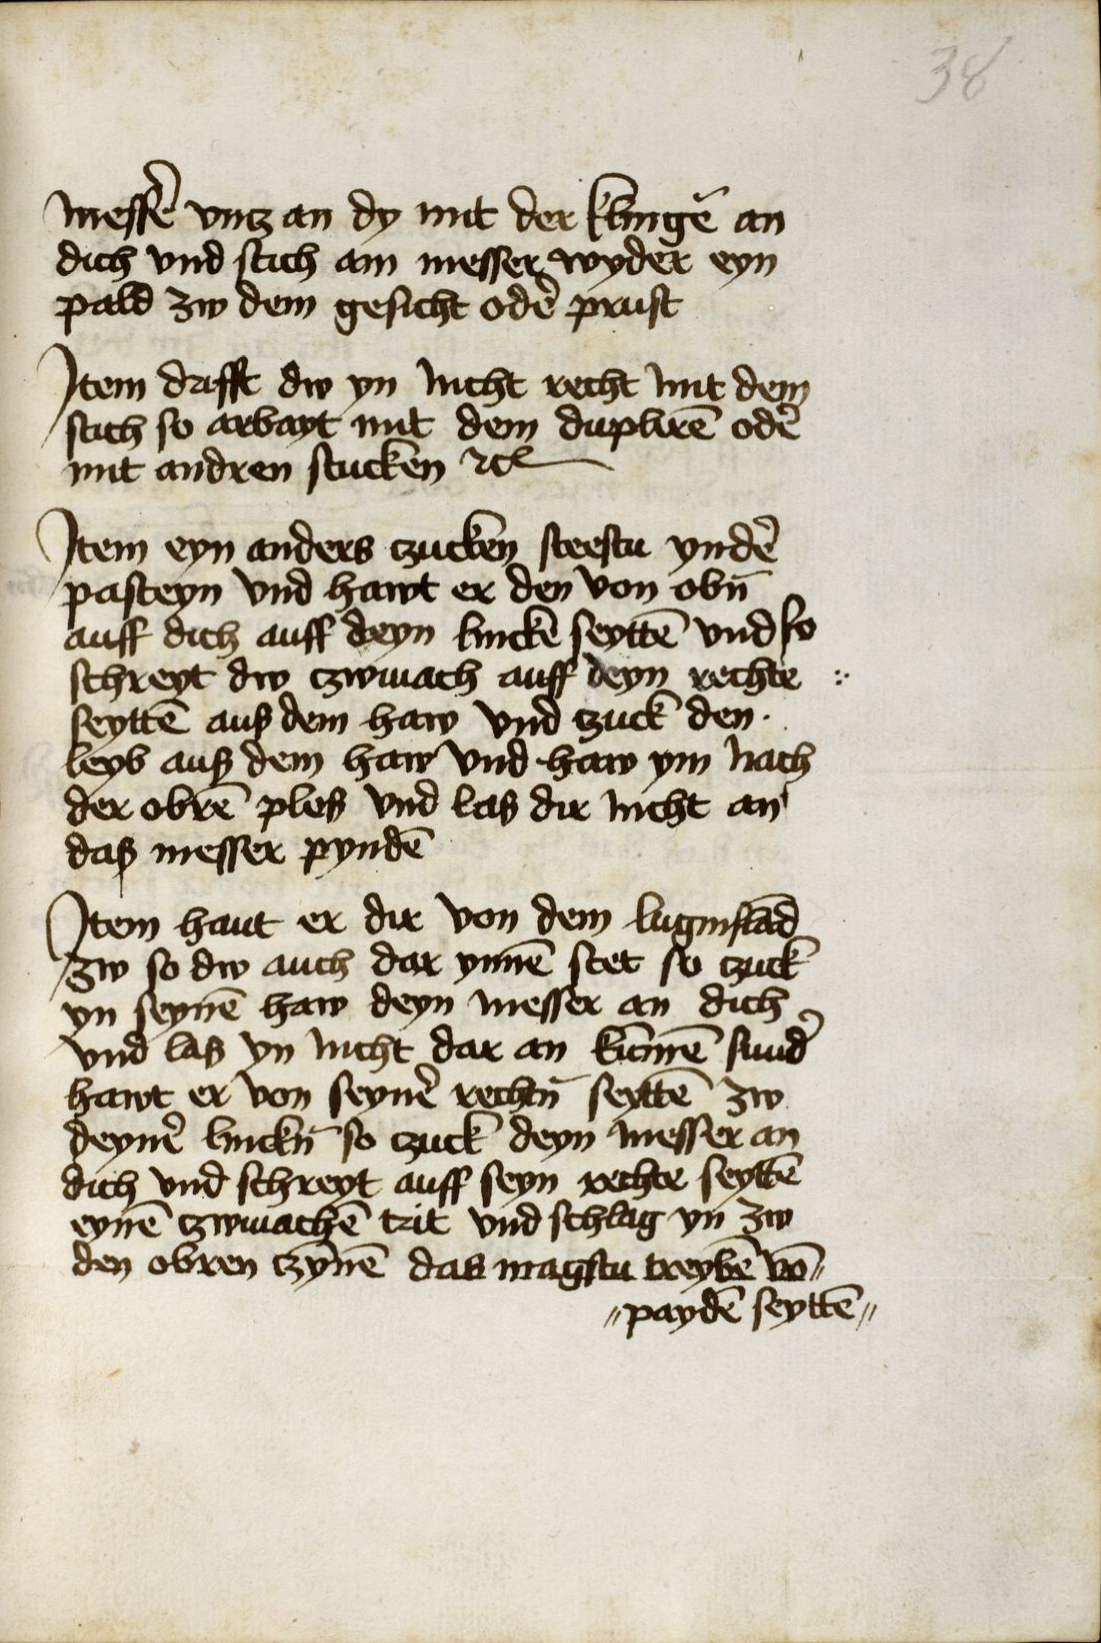 38
messer̄ vntz an dy mit der klingē an
dich vnd stich am messer wyder eyn
pald zw dem gesicht oder̄ prust
Item drifft dw yn nicht recht mit dem
stich so arbayt mit dem duplirē oder̄
mit andren stucken ⁊c
Item eyn anders czucken steestu ynder̄
pasteyn vnd hawt er den von obn̄
auff dich auff deyn linckē seyttē vnd so
schreyt dw czwuach auff deyn rechte :·
seyttē auß dem haw vnd tzuck den
leyb auß dem haw vnd haw ym nach
der obrē ples vnd las dir nicht an
daß messer pyndē
Item haut er dir von dem luginslād
zw so dw auch dar ynnē stet so czuck
yn seynē haw deyn messer an dich
vnd las yn nicht dar an kūmē sunder̄
hawt er von seyner̄ rechtn̄ seyttē zw
deyner̄ linckn̄ so czuck deyn messer an
dich vnd schreyt auff seyn rechte seyttē
eynē czwuachē trit vnd schlag yn zw
den obren czȳnē das magstu treybē vō〃
〃paydē seyttē〃